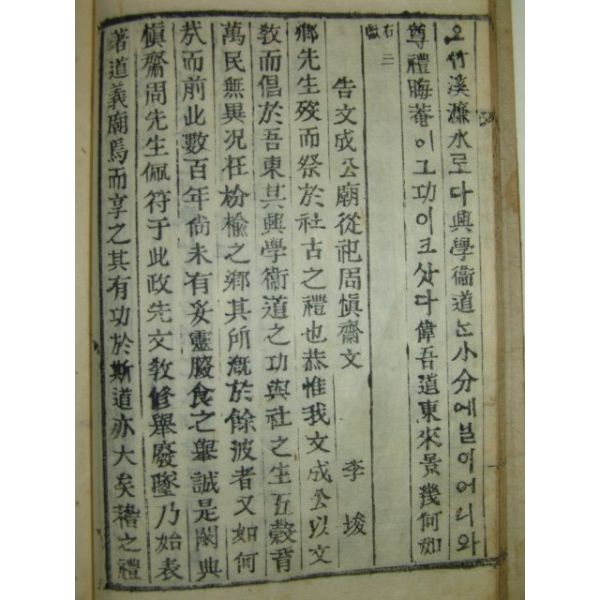 오竹溪濂水로다興學衛道는小分에닐이어니와
尊禮晦菴이그功이크샷다偉吾道東來景幾何如
右三獻
告文成公廟從祀周愼齋文 李埈
鄕先生歿而祭於社古之禮也恭惟我文成公以文
敎而倡於吾東其興學衛道之功與社之生五穀育
萬民無異况在枌楡之鄕其所漑於餘波者又如何
㦲而前此數百年尙未有妥靈腏食之擧誠是闕典
愼齋周先生佩符于此政先文敎修擧廢墜乃始表
著道義廟焉而享之其有功於斯道亦大矣稽之禮